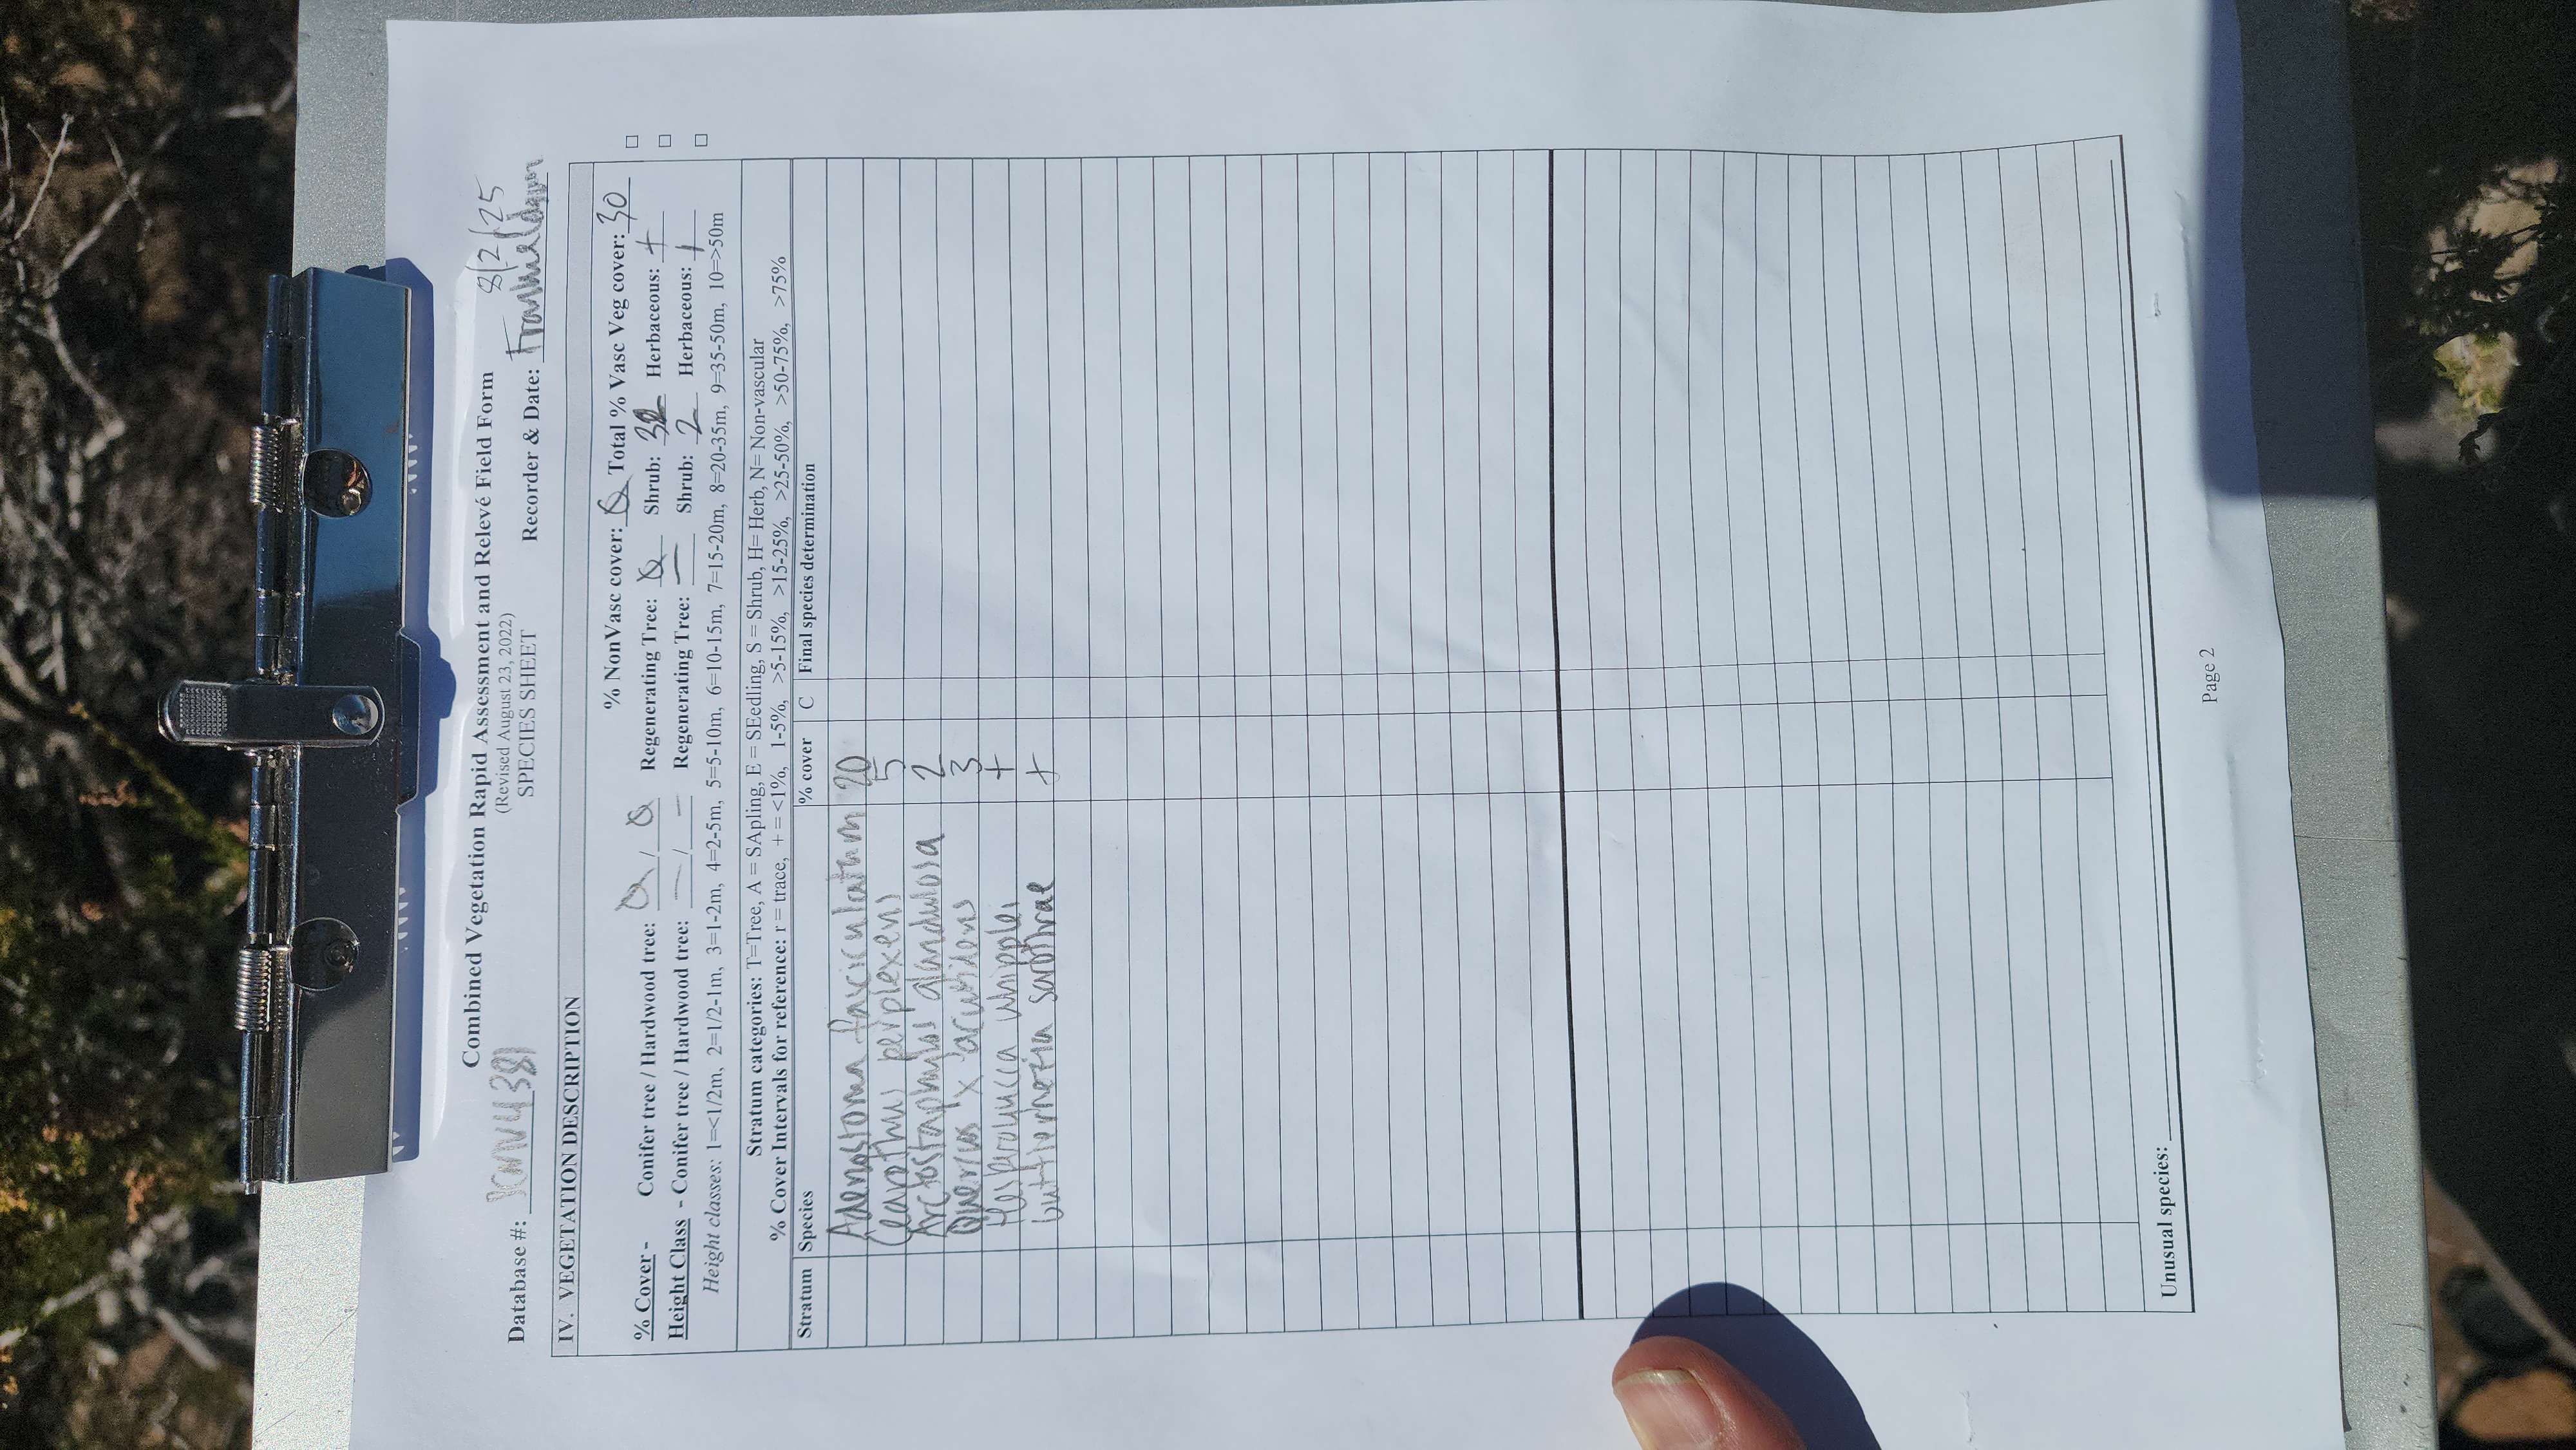 Combined Vegetation Rapid Assessment and Relevé Field Form
(Revised August 23, 2022)
SPECIES SHEET
8/2/25
Database #: Recorder & Date:
IV. VEGETATION DESCRIPTION
% NonVasc cover: 0 Total % Vasc Veg cover: 30
% Cover - Conifer tree / Hardwood tree: 0 / 0 Regenerating Tree: 0 Shrub: 30 Herbaceous: +
Height Class - Conifer tree / Hardwood tree: — / — Regenerating Tree: — Shrub: 2 Herbaceous: 1
Height classes: 1=<1/2m, 2=1/2-1m, 3=1-2m, 4=2-5m, 5=5-10m, 6=10-15m, 7=15-20m, 8=20-35m, 9=35-50m, 10=>50m
Stratum categories: T=Tree, A = SApling, E = SEedling, S = Shrub, H= Herb, N= Non-vascular
% Cover Intervals for reference: r = trace, + = <1%, 1-5%, >5-15%, >15-25%, >25-50%, >50-75%, >75%
Stratum Species % cover C Final species determination
Adenostoma fasciculatum 20
Ceanothus perplexens 5
Arctostaphylos glandulosa 2
Quercus x acutidens 3
Hesperoyucca whipplei +
Gutierrezia sarothrae +
Unusual species:
Page 2